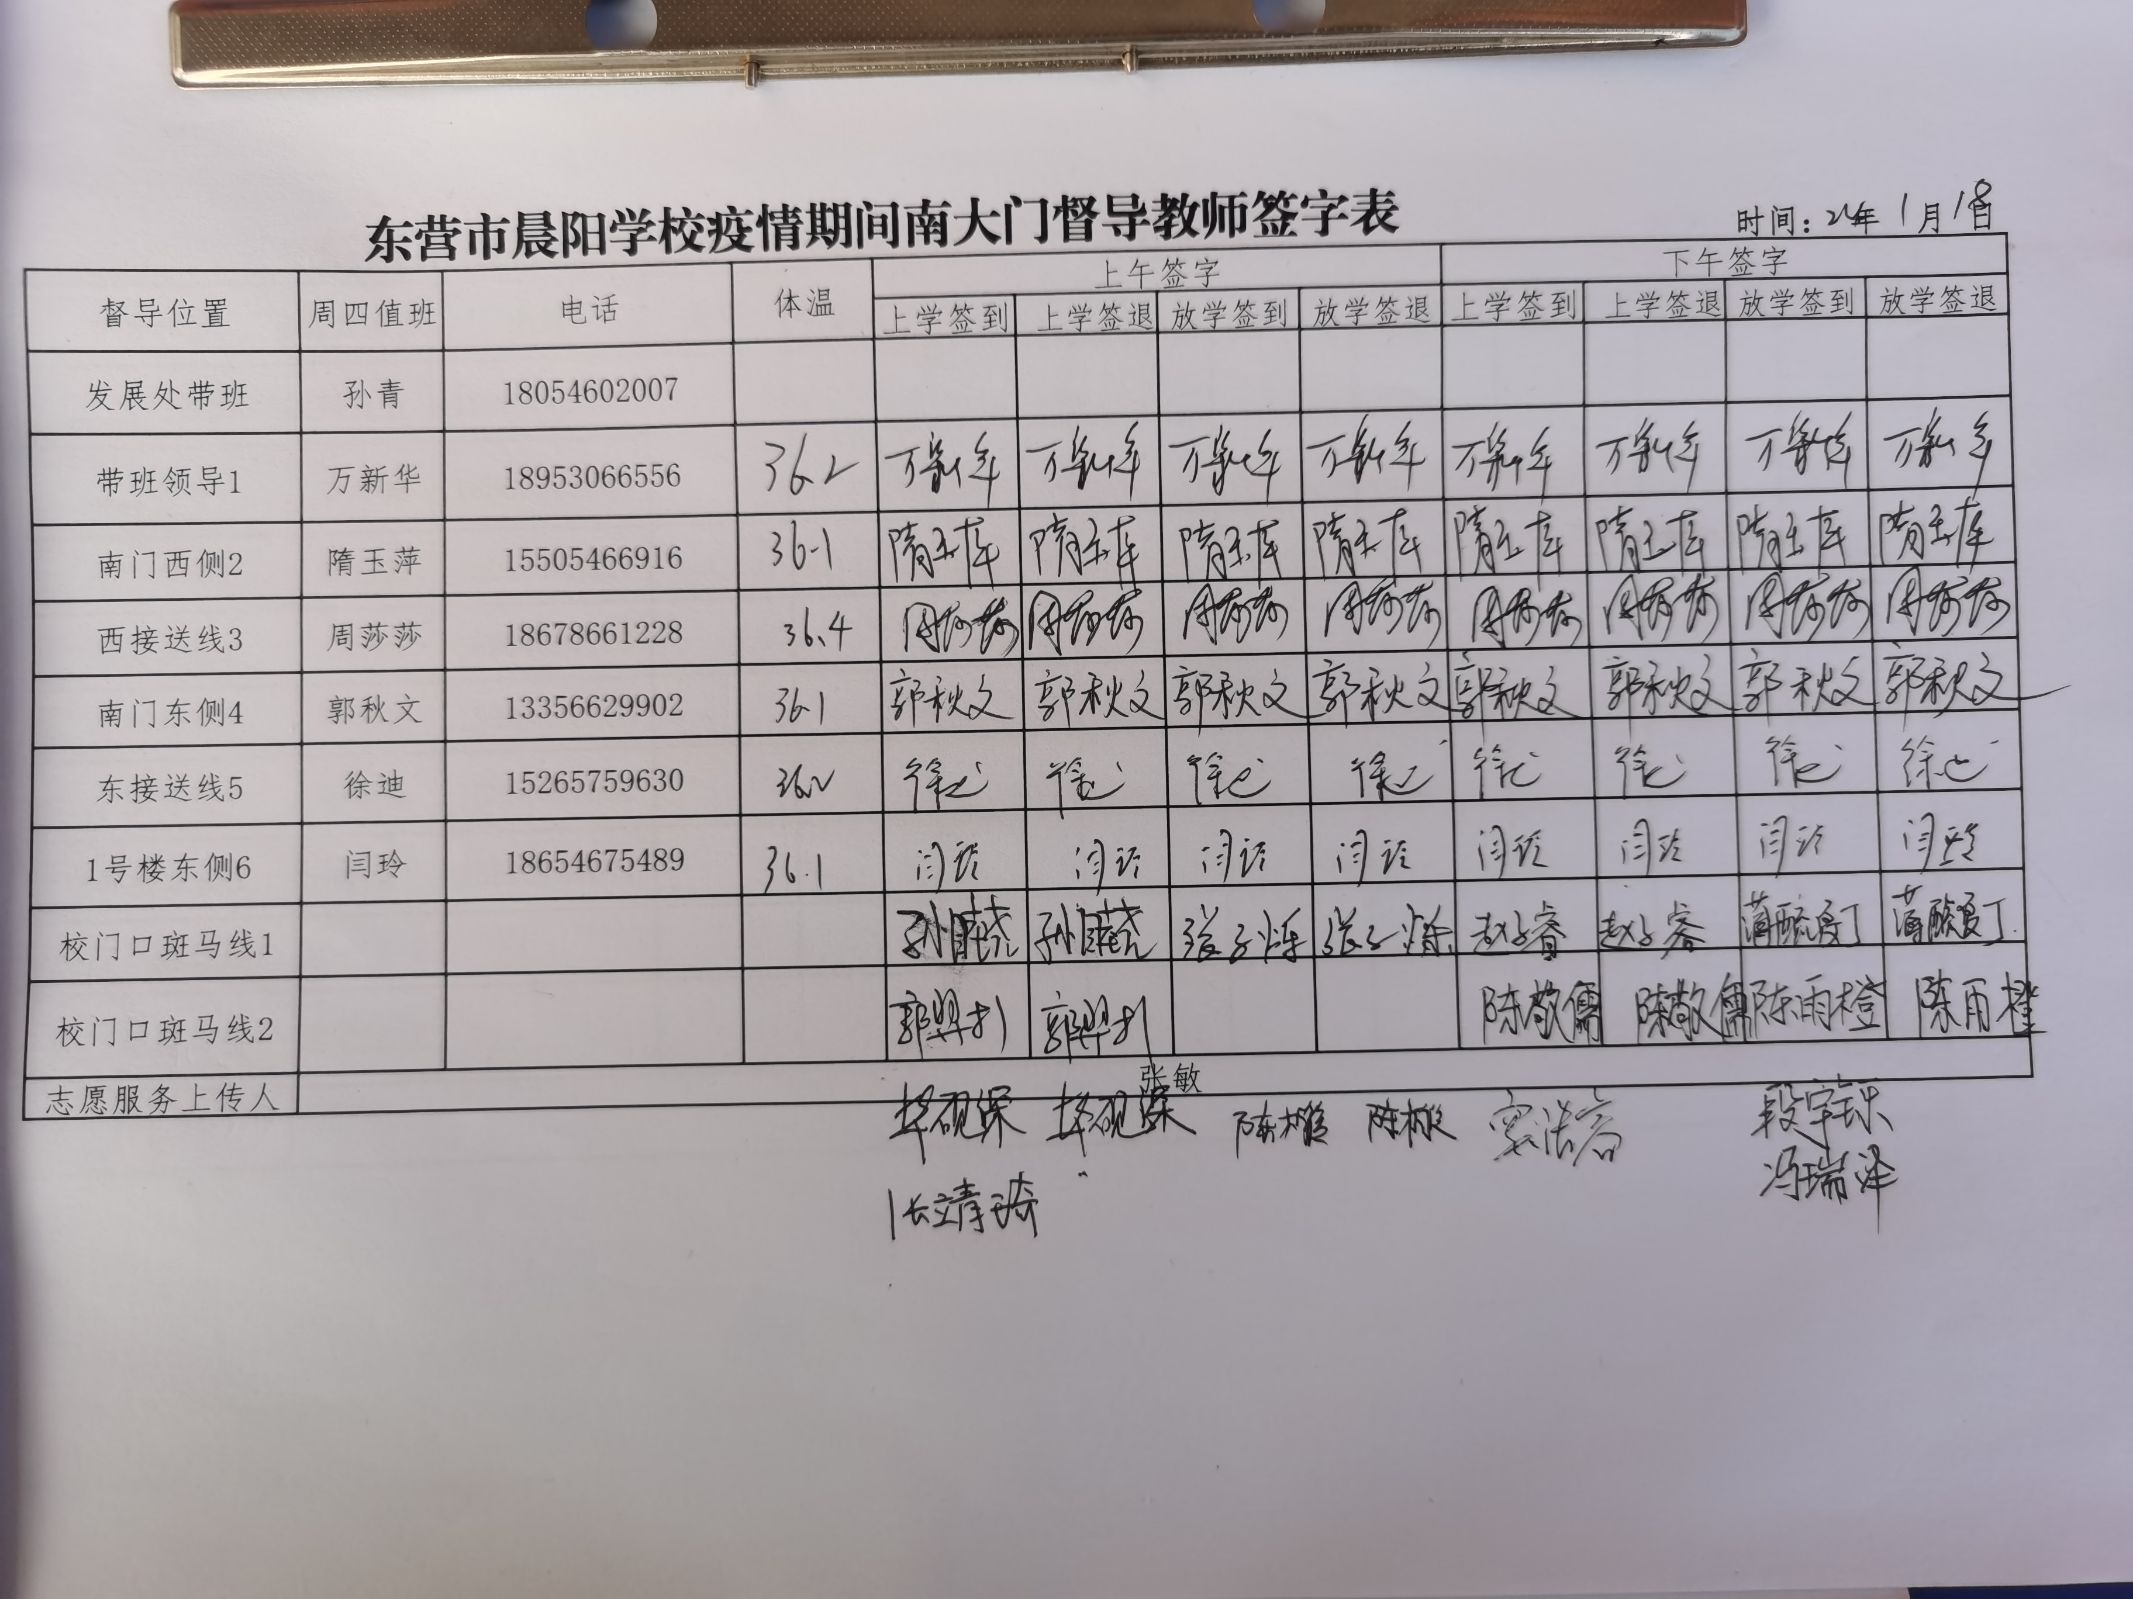 东营市晨阳学校疫情期间南大门督导教师签字表
时间：24年1月18日
督导位置 周四值班 电话 体温 上午签字 下午签字
上学签到 上学签退 放学签到 放学签退 上学签到 上学签退 放学签到 放学签退
发展处带班 孙青 18054602007
带班领导1 万新华 18953066556 36.2 万新华 万新华 万新华 万新华 万新华 万新华 万新华 万新华
南门西侧2 隋玉萍 15505466916 36.1 隋玉萍 隋玉萍 隋玉萍 隋玉萍 隋玉萍 隋玉萍 隋玉萍 隋玉萍
西接送线3 周莎莎 18678661228 36.4 周莎莎 周莎莎 周莎莎 周莎莎 周莎莎 周莎莎 周莎莎 周莎莎
南门东侧4 郭秋文 13356629902 36.1 郭秋文 郭秋文 郭秋文 郭秋文 郭秋文 郭秋文 郭秋文 郭秋文
东接送线5 徐迪 15265759630 36.2 徐迪 徐迪 徐迪 徐迪 徐迪 徐迪 徐迪 徐迪
1号楼东侧6 闫玲 18654675489 36.1 闫玲 闫玲 闫玲 闫玲 闫玲 闫玲 闫玲 闫玲
校门口斑马线1 赵子睿 赵子睿
校门口斑马线2 陈敬儒 陈敬儒 陈雨橙 陈雨橙
志愿服务上传人 张敏
段宇铄
张靖琦 冯瑞泽